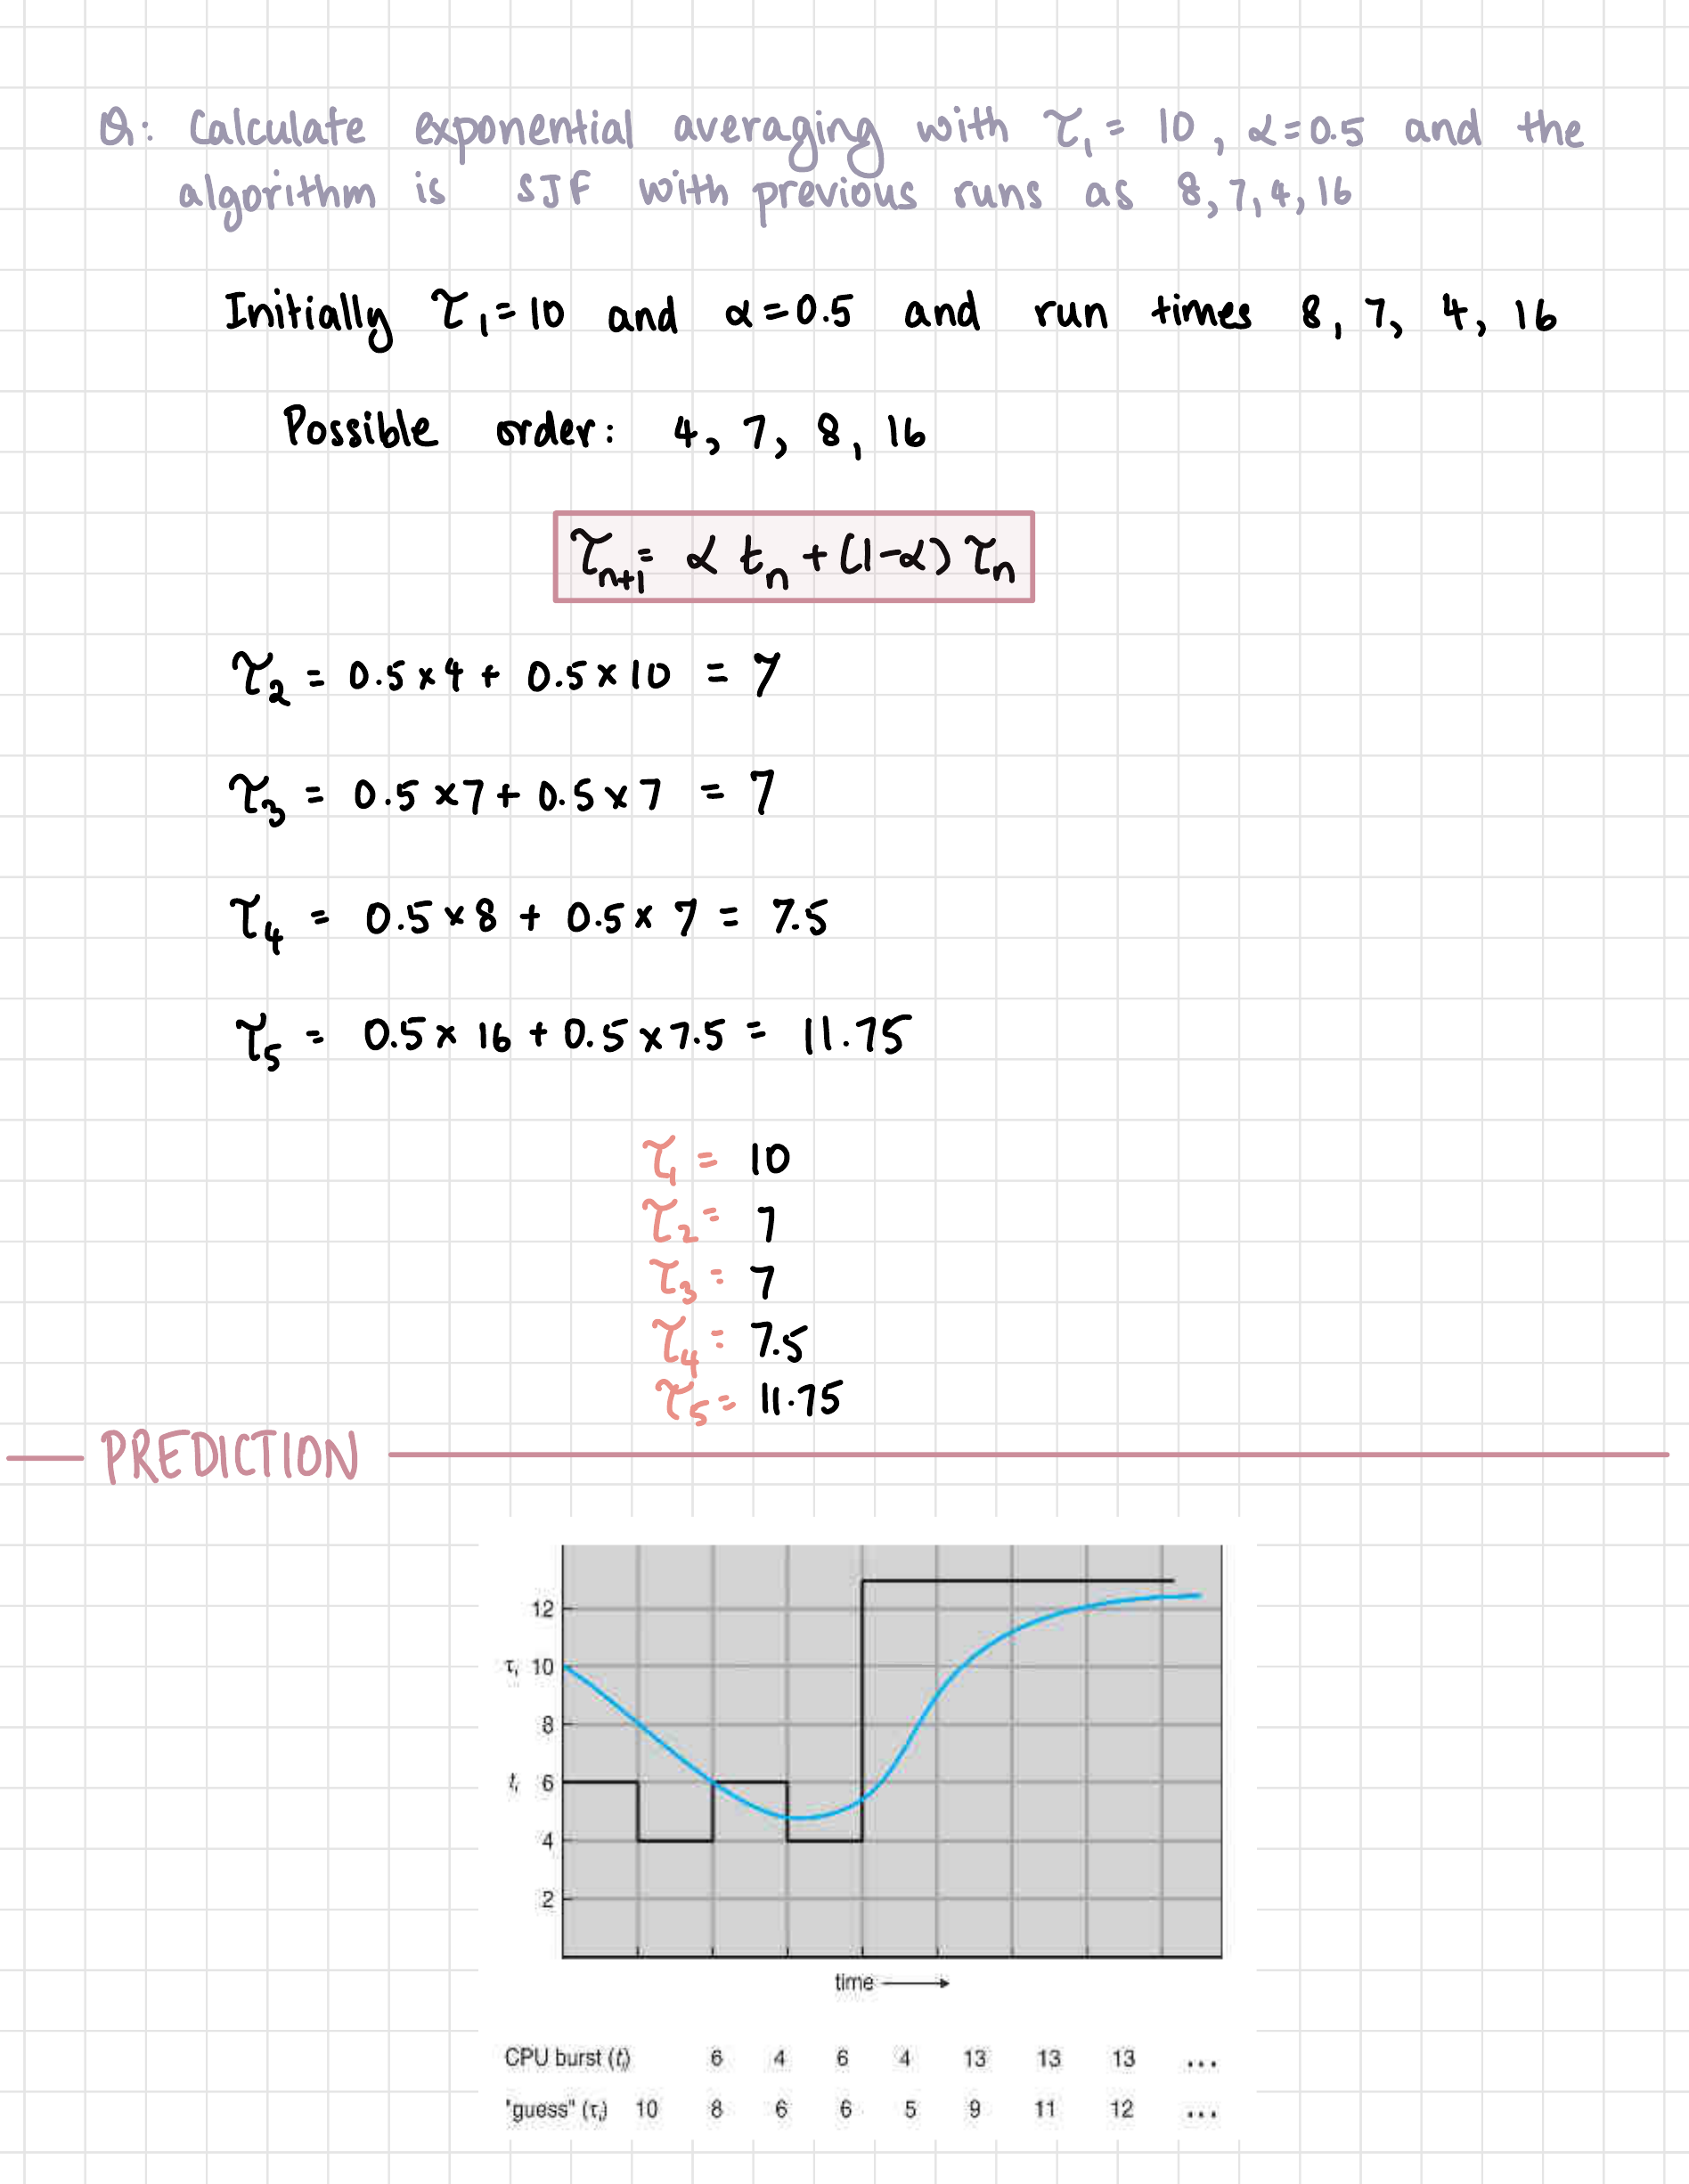 Q: Calculate exponential averaging with τ₁ = 10, α=0.5 and the
algorithm is SJF with previous runs as 8, 7, 4, 16
Initially τ₁ = 10 and α = 0.5 and run times 8, 7, 4, 16
Possible order: 4, 7, 8, 16
τₙ₊₁ = α tₙ + (1-α) τₙ
τ₂ = 0.5 x 4 + 0.5 x 10 = 7
τ₃ = 0.5 x 7 + 0.5 x 7 = 7
τ₄ = 0.5 x 8 + 0.5 x 7 = 7.5
τ₅ = 0.5 x 16 + 0.5 x 7.5 = 11.75
τ₁ = 10
τ₂ = 7
τ₃ = 7
τ₄ = 7.5
τ₅ = 11.75
PREDICTION
12
τᵢ 10
8
tᵢ 6
4
2
time
CPU burst (tᵢ) 6 4 6 4 13 13 13 ...
"guess" (τᵢ) 10 8 6 6 5 9 11 12 ...